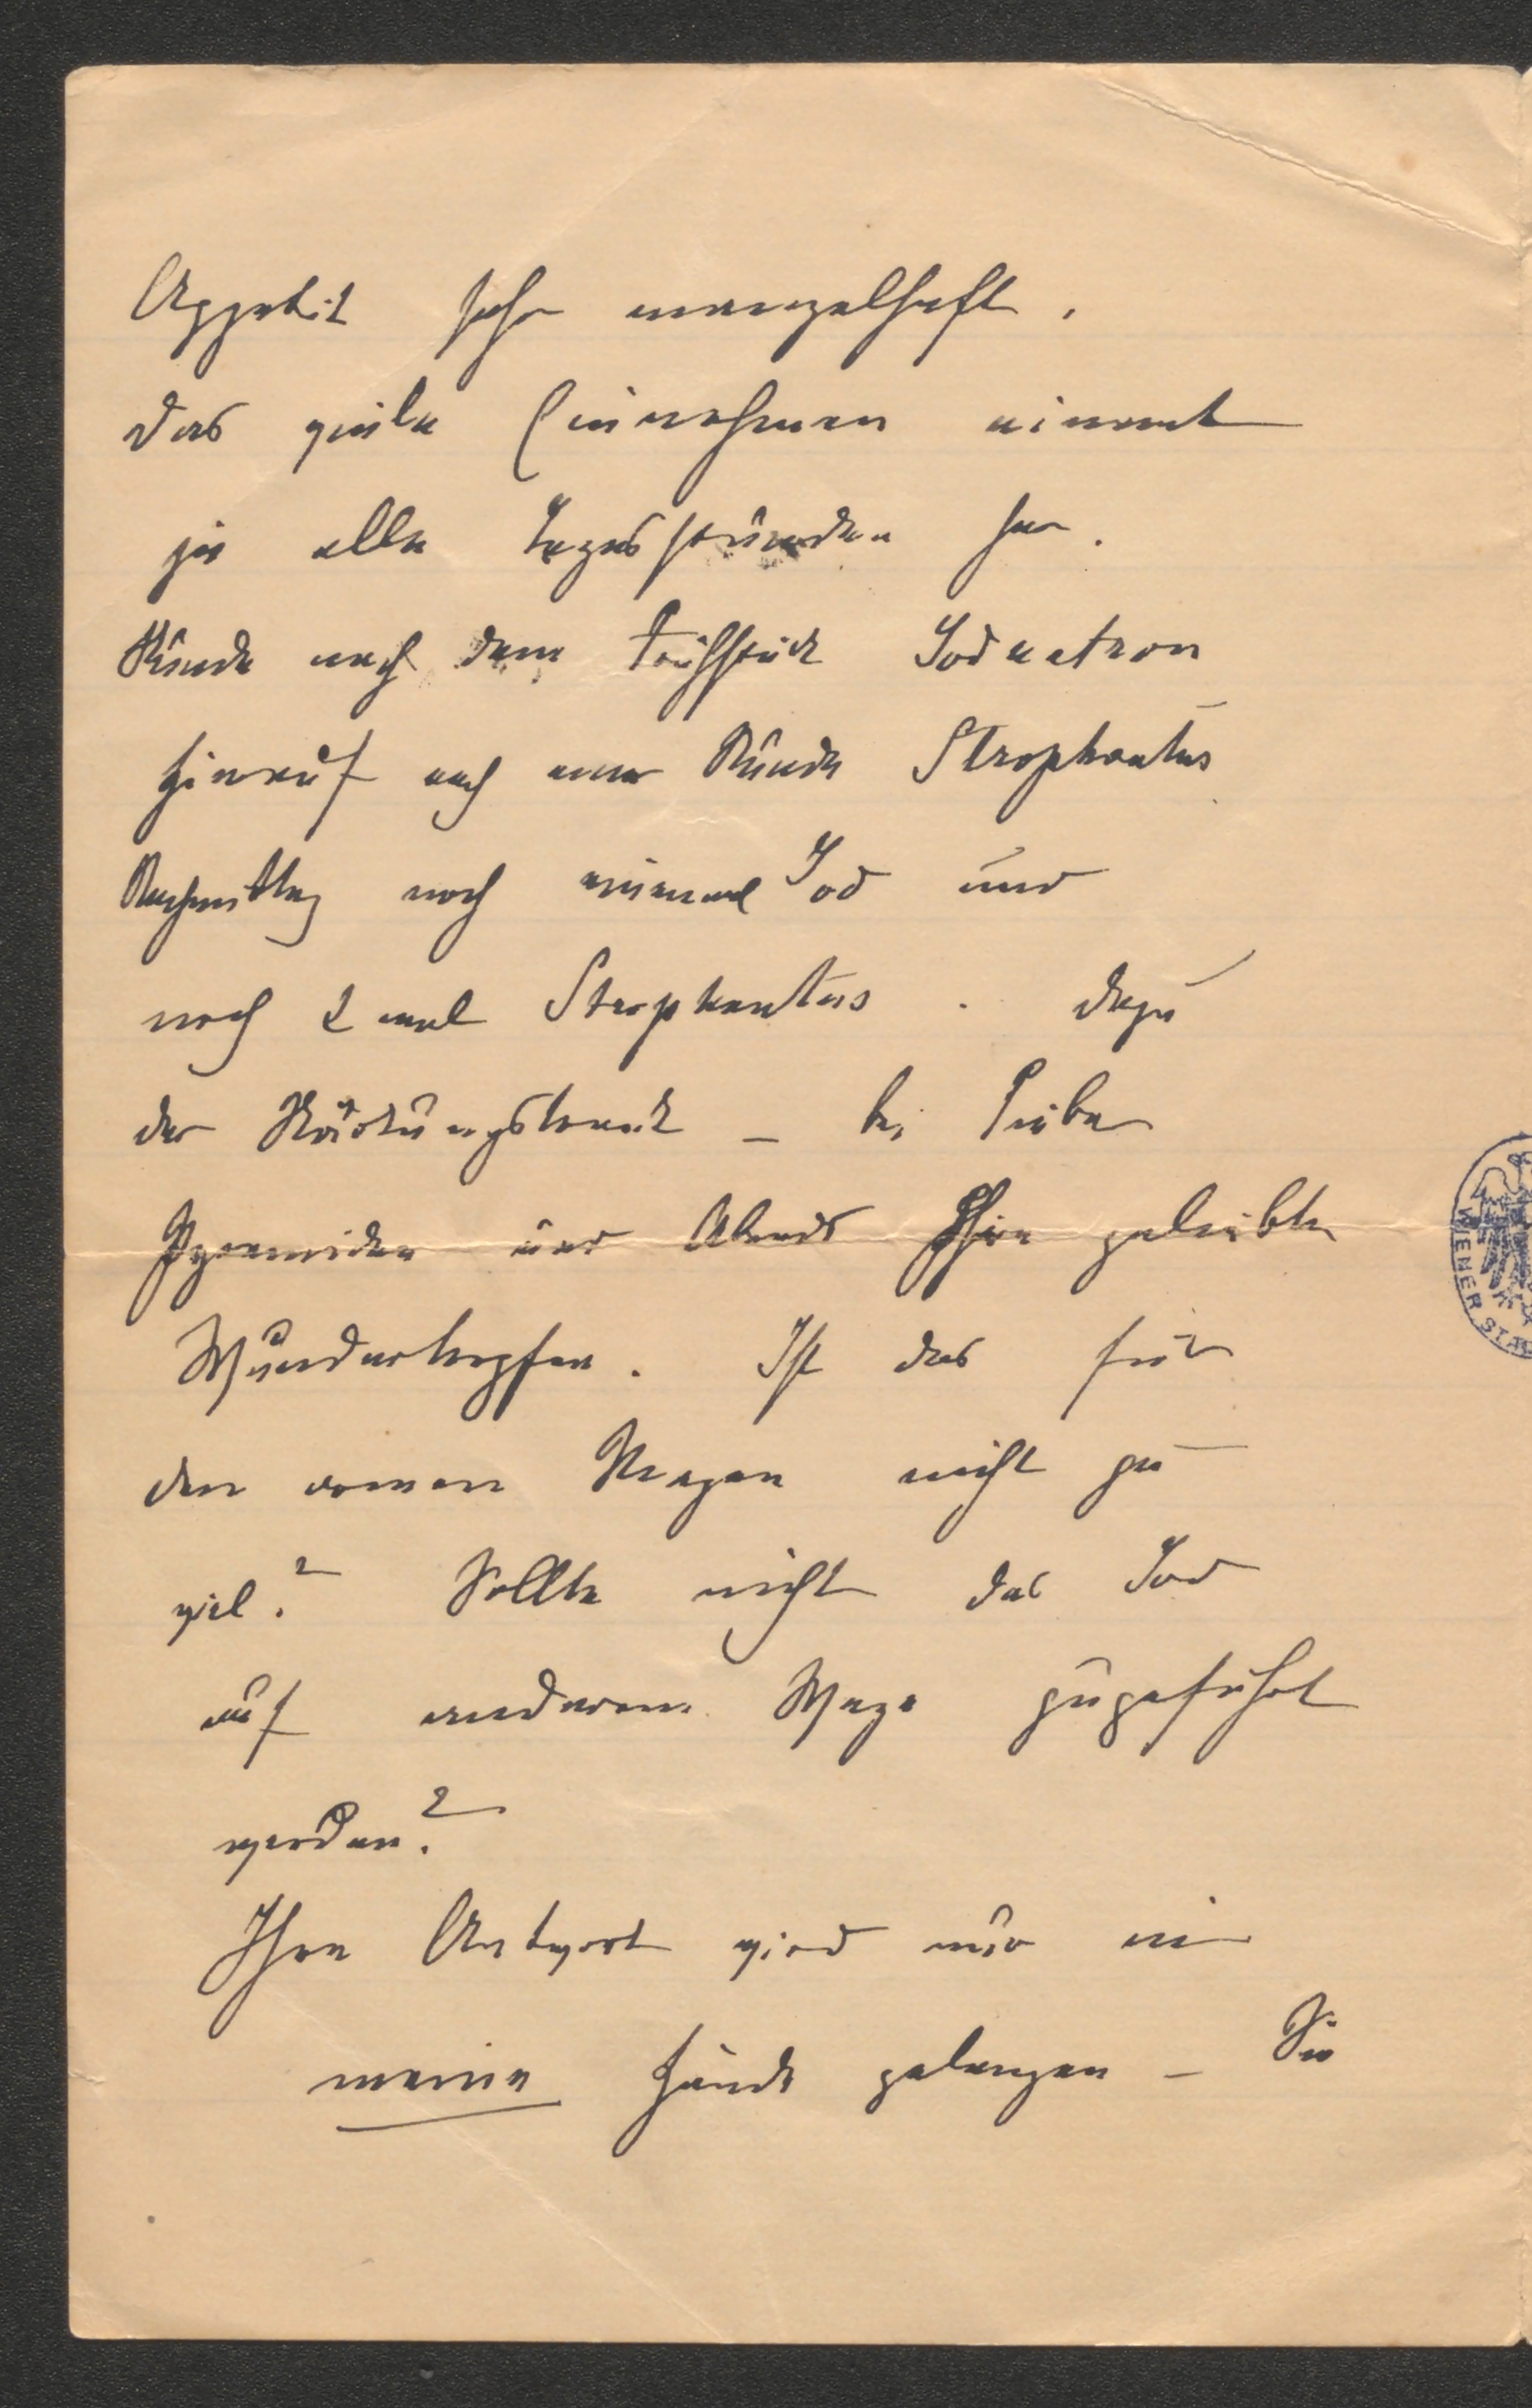 Appetit sehr mangelhaft.
das viele Einnehmen nimmt
ja alle Tagesstunden her.
Stunde nach dem Frühstück Jodnatron
hierauf nach einer Stunde Strophantus
Nachmittag noch einmal Jod und
noch 2 mal Strophantus. dazu
der Stärkungstrank – bei Fieber
Pyramidon und Abends Ihre geliebten
Wundertropfen. Ist das für
den armen Magen nicht zu
viel? Sollte nicht das Jod
auf anderem Wege zugeführt
werden?
Ihre Antwort wird nur in
meine Hände gelangen – Sie
WIENER STA